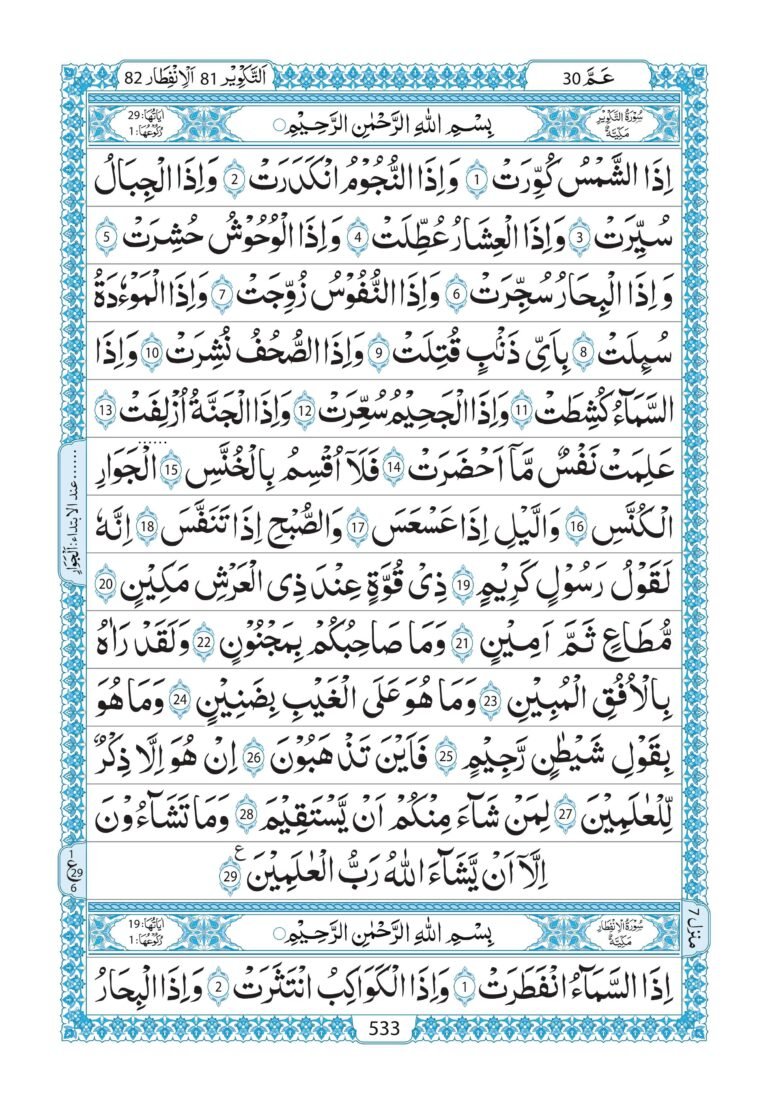 عَمَّ 30
اَلتَّكْوِيْر 81 اَلْاِنْفِطَار 82
سُوْرَةُ التَّكْوِيْرِ مَكِّيَّةٌ
بِسْمِ اللّٰهِ الرَّحْمٰنِ الرَّحِيْمِ
اٰيَاتُهَا: 29
رُكُوْعُهَا: 1
اِذَا الشَّمْسُ كُوِّرَتْ 1 وَاِذَا النُّجُوْمُ انْكَدَرَتْ 2 وَاِذَا الْجِبَالُ
سُيِّرَتْ 3 وَاِذَا الْعِشَارُ عُطِّلَتْ 4 وَاِذَا الْوُحُوْشُ حُشِرَتْ 5
وَاِذَا الْبِحَارُ سُجِّرَتْ 6 وَاِذَا النُّفُوْسُ زُوِّجَتْ 7 وَاِذَا الْمَوْءٗدَةُ
سُىِٕلَتْ 8 بِاَىِّ ذَنْۢبٍ قُتِلَتْ 9 وَاِذَا الصُّحُفُ نُشِرَتْ 10 وَاِذَا
السَّمَآءُ كُشِطَتْ 11 وَاِذَا الْجَحِيْمُ سُعِّرَتْ 12 وَاِذَا الْجَنَّةُ اُزْلِفَتْ 13
عَلِمَتْ نَفْسٌ مَّاۤ اَحْضَرَتْ 14 فَلَاۤ اُقْسِمُ بِالْخُنَّسِ 15 الْجَوَارِ
الْكُنَّسِ 16 وَالَّيْلِ اِذَا عَسْعَسَ 17 وَالصُّبْحِ اِذَا تَنَفَّسَ 18 اِنَّهٗ
لَقَوْلُ رَسُوْلٍ كَرِيْمٍ 19 ذِىْ قُوَّةٍ عِنْدَ ذِى الْعَرْشِ مَكِيْنٍ 20
مُّطَاعٍ ثَمَّ اَمِيْنٍ 21 وَمَا صَاحِبُكُمْ بِمَجْنُوْنٍ 22 وَلَقَدْ رَاٰهُ
بِالْاُفُقِ الْمُبِيْنِ 23 وَمَا هُوَ عَلَى الْغَيْبِ بِضَنِيْنٍ 24 وَمَا هُوَ
بِقَوْلِ شَيْطٰنٍ رَّجِيْمٍ 25 فَاَيْنَ تَذْهَبُوْنَ 26 اِنْ هُوَ اِلَّا ذِكْرٌ
لِّلْعٰلَمِيْنَ 27 لِمَنْ شَآءَ مِنْكُمْ اَنْ يَّسْتَقِيْمَ 28 وَمَا تَشَآءُوْنَ
اِلَّاۤ اَنْ يَّشَآءَ اللّٰهُ رَبُّ الْعٰلَمِيْنَ 29 ع
سُوْرَةُ الْاِنْفِطَارِ مَكِّيَّةٌ
بِسْمِ اللّٰهِ الرَّحْمٰنِ الرَّحِيْمِ
اٰيَاتُهَا: 19
رُكُوْعُهَا: 1
اِذَا السَّمَآءُ انْفَطَرَتْ 1 وَاِذَا الْكَوَاكِبُ انْتَثَرَتْ 2 وَاِذَا الْبِحَارُ
منزل 7
......عند الابتداء: اَلْجَوَارِ
1
ع 29
6
533